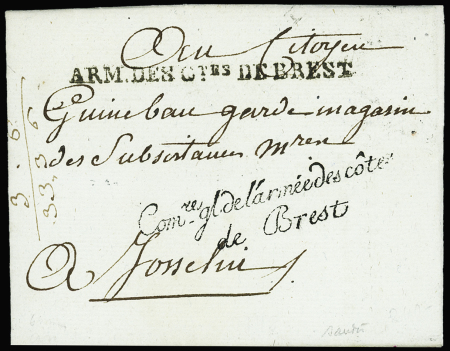 Au Citoyen
ARM. DES CTES DE BREST
Guinebau garde magasin
des Subsistances mres
Comre gl. de l'armée des côtes
de Brest
A Josselin
3 . 6
33.36